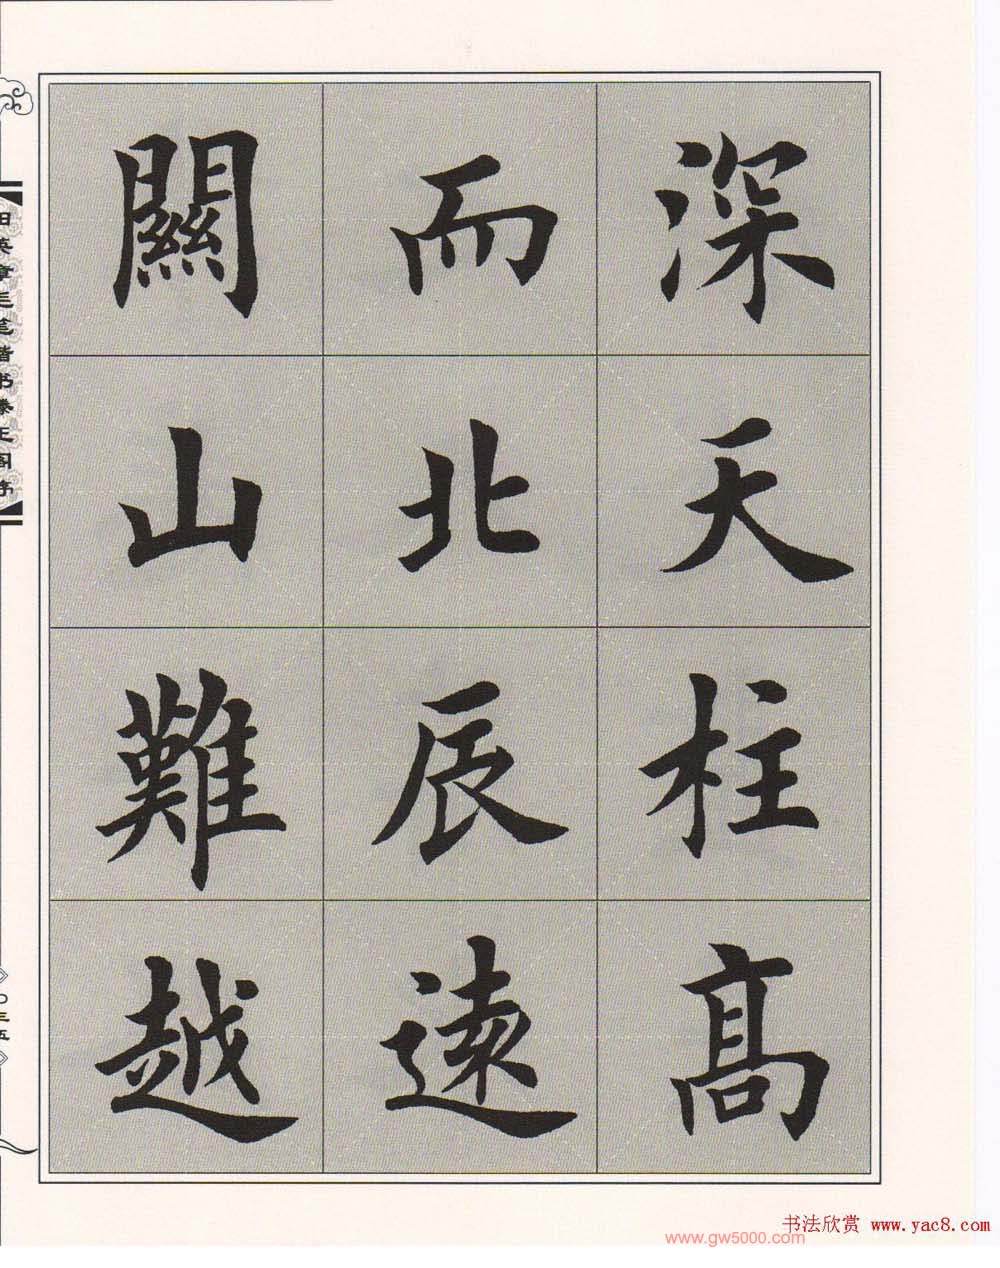 深天柱高
而北辰遠
關山難越
田英章毛笔楷书滕王阁序
〇三五
书法欣赏 www.yac8.com
www.gw5000.com